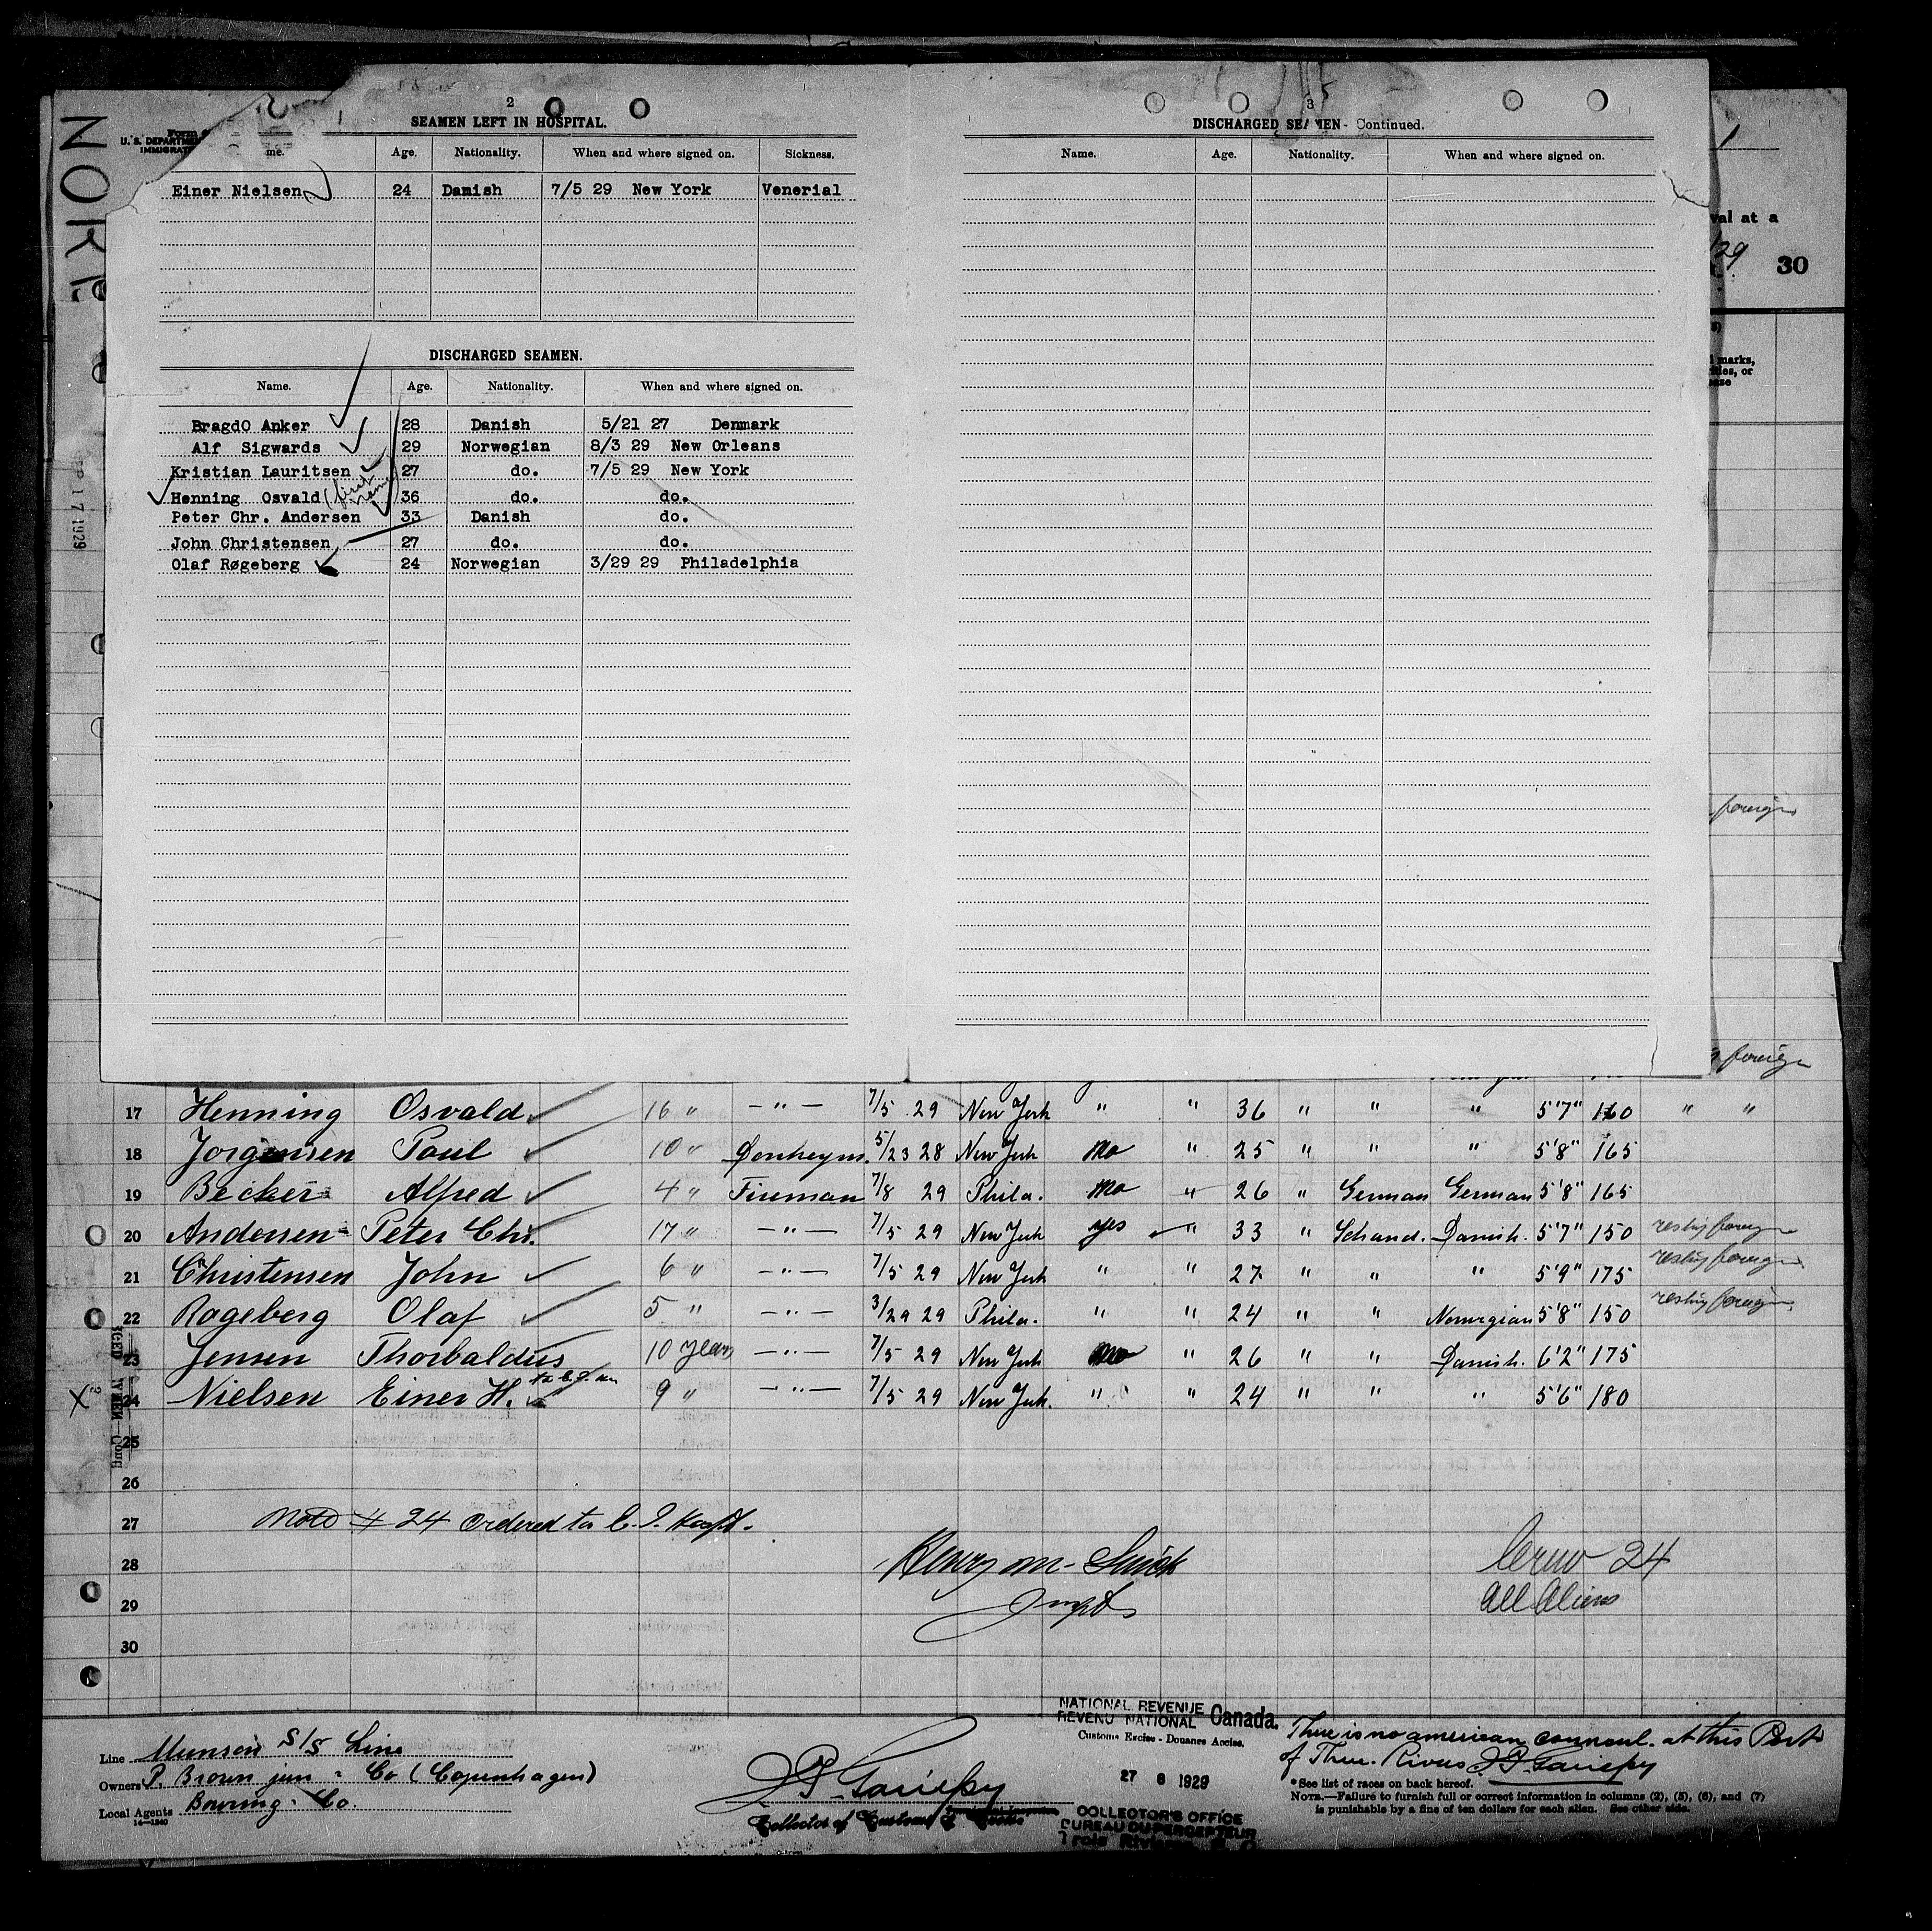 NORF
2
SEAMEN LEFT IN HOSPITAL.
U. S. DEPARTME
IMMIGRAT
me. Age. Nationality. When and where signed on. Sickness.
Einer Nielsen 24 Danish 7/5 29 New York Venerial
DISCHARGED SEAMEN.
Name. Age. Nationality. When and where signed on.
BragdO Anker 28 Danish 5/21 27 Denmark
Alf Sigwards 29 Norwegian 8/3 29 New Orleans
Kristian Lauritsen 27 do. 7/5 29 New York
Henning Osvald (first name) 36 do. do.
Peter Chr. Andersen 33 Danish do.
John Christensen 27 do. do.
Olaf Røgeberg 24 Norwegian 3/29 29 Philadelphia
3
DISCHARGED SEAMEN - Continued.
Name. Age. Nationality. When and where signed on.
val at a
/29 30
marks,
or
foreign
foreign
P 17 1929
17 Henning Osvald 16 " — " — 7/5 29 New York " " 36 " " " 5'7" 160 " "
18 Jorgensen Paul 10 " Donkeym. 5/23 28 New York no " 25 " " " 5'8" 165
19 Becker Alfred 4 " Fireman 7/8 29 Phila. no " 26 " German German 5'8" 165
20 Andersen Peter Chr. 17 " — " — 7/5 29 New York yes " 33 " Schand. Danish. 5'7" 150 reship foreign
21 Christensen John 6 " — " — 7/5 29 New York " " 27 " " " 5'9" 175 reship foreign
22 Rogeberg Olaf 5 " — " — 3/29 29 Phila. " " 24 " " Norwegian 5'8" 150 reship foreign
23 Jensen Thorbaldus 10 years — " — 7/5 29 New York no " 26 " " Danish. 6'2" 175
X 24 Nielsen Einer H. 9 " — " — 7/5 29 New York. " " 24 " " " 5'6" 180
25
26
27 Note # 24 ordered to E. I. Hospt.
28 Crew 24
29 All Aliens
30
Line Munson S/S Line
Owners P. Brown jun - Co (Copenhagen)
Local Agents Bowring - Co.
14—1240
J P Gariepy
Collector of Customs
NATIONAL REVENUE
REVENU NATIONAL Canada.
Customs Excise - Douanes Accise.
27 8 1929
COLLECTOR'S OFFICE
BUREAU DU PERCEPTEUR
There is no american consul at this Port
of Three Rivers J P Gariepy
*See list of races on back hereof.
NOTE.—Failure to furnish full or correct information in columns (2), (5), (6), and (7)
is punishable by a fine of ten dollars for each alien. See other side.